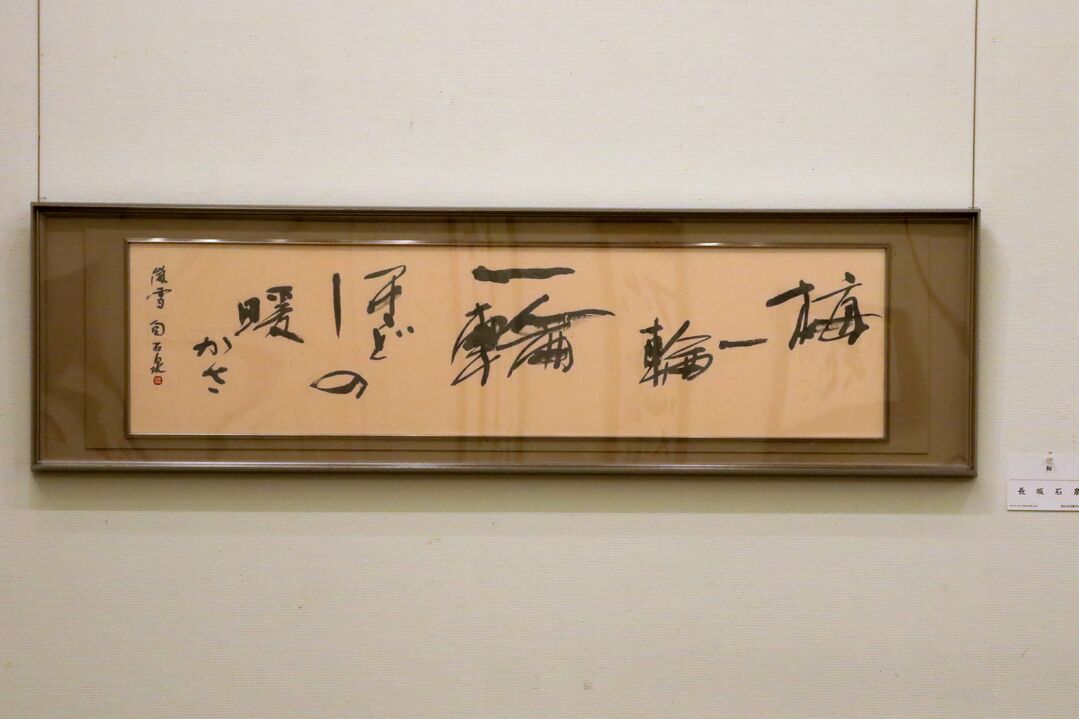 梅
一輪
一輪
ほど
の
暖
かさ
嵐雪句 石泉
梅
長坂石泉